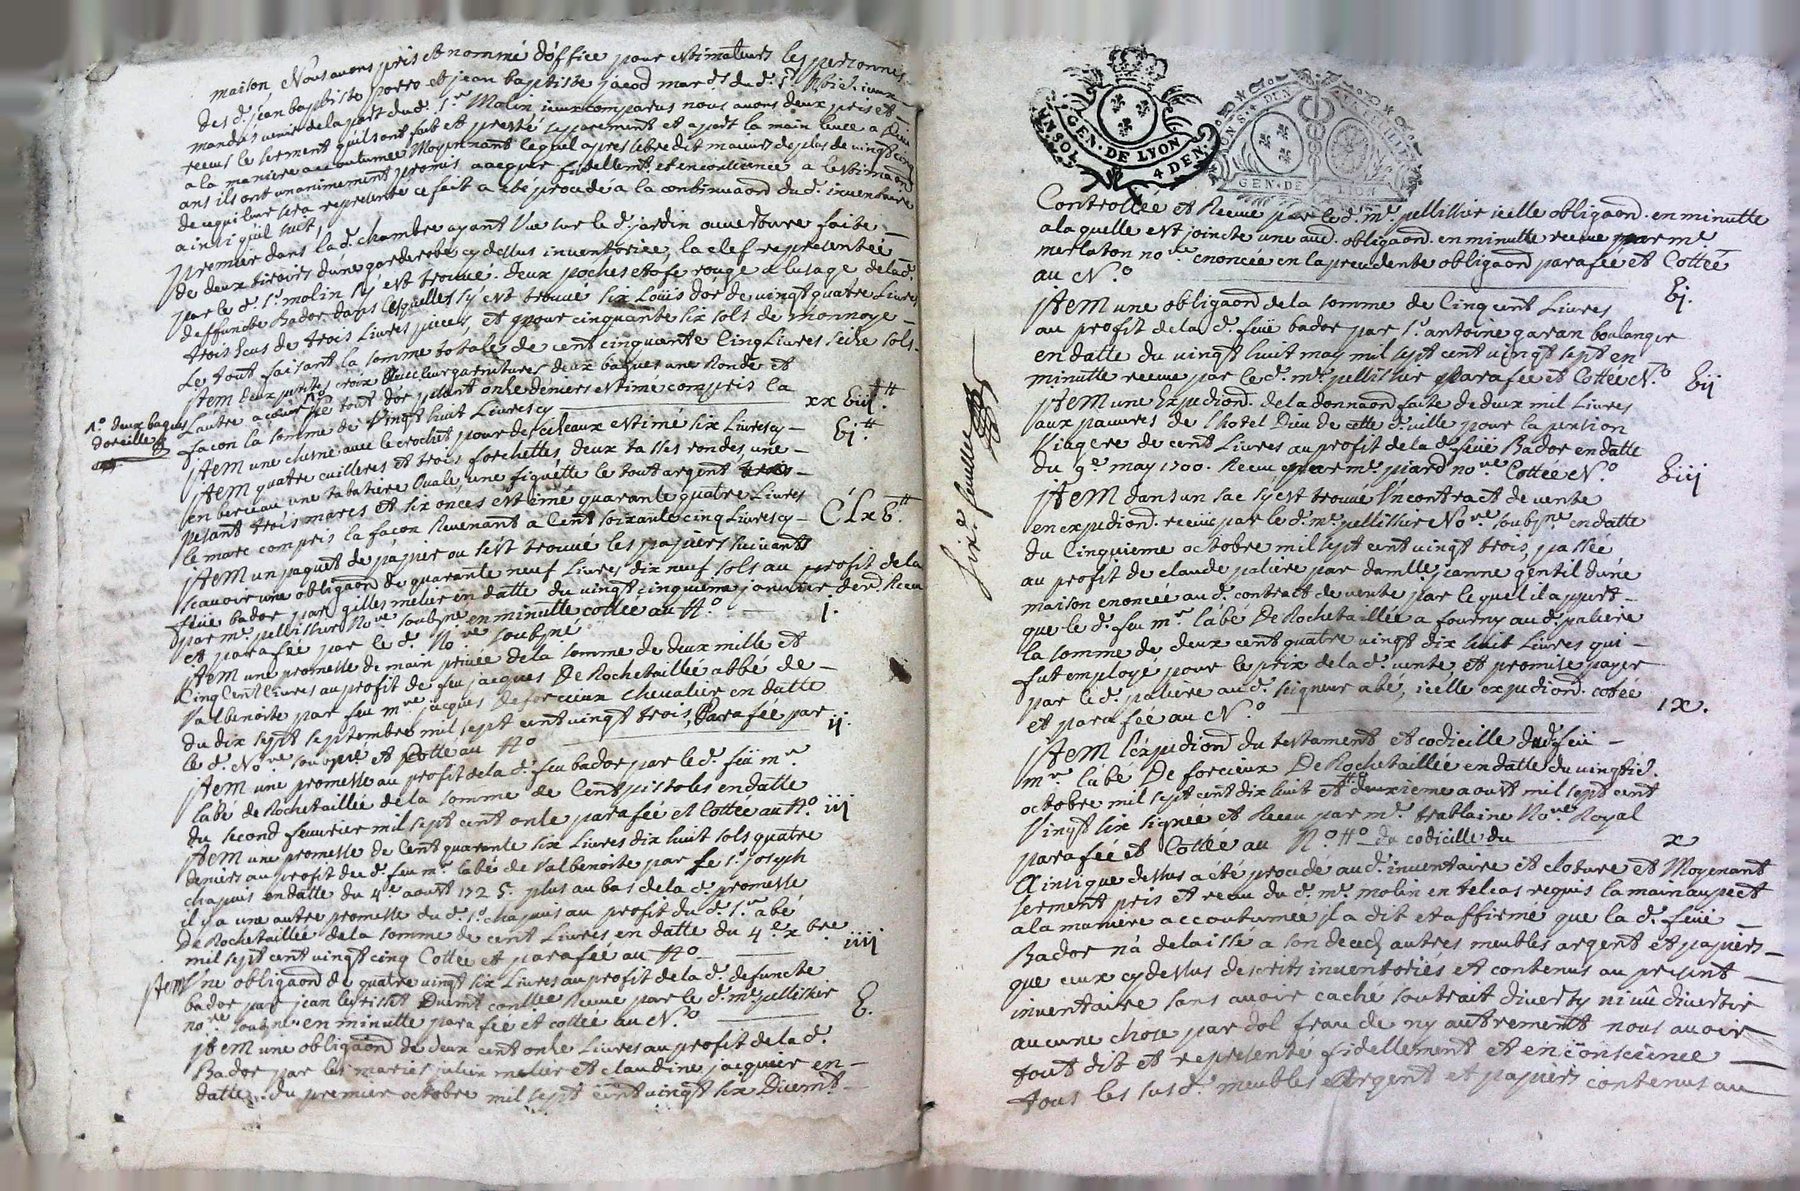 maison Nous avons pris et nommé d'office pour estimateurs les personnes
des d. jean baptiste porro et jean baptiste jacod mar.ds du d. s.t
mandés venir de la part du d. s.r Molin iceux comparus nous avons deux pris et
receus le serment qu'ils ont fait et presté separement et a part la main levee a Dieu
a la maniere accoutumee Moyennant lequel apres lebre dit majeurs de plus de vingt cinq
ans ils ont unanimement promis vacquer fidellem.t et en conscience a lestimaon
de ce qui leur sera representé ce fait a ete procedé a la continuaon du d. inventaire
ainsi qu'il suit,
premier dans la d. chambre ayant vue sur le d. jardin ouverture faite
de deux tiroirs d'une garderobe cy dessus inventoriée, la clef representée
par le d. s.r molin s'y est trouvé deux poches etofe rouge a l'usage de la d.
deffuncte Bador dans lesquelles s'y est trouvé six Louis d'or de vingt quatre Livres
trois Ecus de trois Livres pieces, et pour cinquante six sols de monnoye
Le tout faisant la somme totale de cent cinquante Cinq Livres seize sols
jtem deux petites croix garnitures deux bagues une Ronde et
L'autre a coeur tout d'or pesant onze deniers estimé compris la
façon la somme de vingt huit Livres cy xx viij.tt
1.o deux bagues
d'oreille
jtem une chesne avec le crochet pour des ciseaux estimé six Livres cy vj.tt
jtem quatre cuilleres et trois forchettes deux tasses rondes une
en berceau une tabatiere ovale une fiquette le tout argent
pesant trois marcs et six onces estimé quarante quatre Livres
le marc compris la façon Revenant a Cent soixante cinq Livres cy CLxv.tt
jtem un paquet de papier ou s'est trouvé les papiers suivants
scavoir une obligaon de quarante neuf Livres dix neuf sols au profit de la
feüe bador par gilles melier en datte du vingt cinquieme janvier der.r Receu
par m.e pellissier No.re soubsné en minutte cottée au N.o I.
et parafée par le d. No.re soubsné
jtem une promesse de main privée de la somme de deux mille et
Cinq Cent Livres au profit de feu jacques De Rochetaillée abbé de
Valbenoite par feu m.re jacques De forcieux chevalier en datte
du dix sept septembre mil sept cent vingt trois, Parafée par ij.
le d. No.re soubsné et Cotté au N.o
jtem une promesse au profit de la d. feu bador par le d. feu m.re
l'abé de Rochetaillée de la somme de Cent pistoles en datte
du second feuvrier mil sept cent onze parafée et Cottée au N.o iij
jtem une promesse de Cent quarante six Livres dix huit sols quatre
deniers au profit du d. feu m.re l'abé de Valbenoite par Le s.r joseph
chapuis en datte du 4.e aoust 1725. plus au bas de la d. promesse
il y a une autre promesse du d. s.r chapuis au profit du d. s.r abé
De Rochetaillée de la somme de cent Livres en datte du 4.e x.bre
mil sept cent vingt cinq Cottée et parafée au N.o iiij
jtem Une obligaon de quatre vingt six Livres au profit de la d. defuncte
bador par jean Duemt contllée Receue par le d. m.e pellissier
no.re soubsné en minutte parafée et cottée au N.o v.
jtem une obligaon de deux cent onze Livres au profit de la d.
Bador par les mariés julien melier et claudine jacquier en
datte du premier octobre mil sept cent vingt six Duemt
UN SOL
GEN. DE LYON
4 DEN.
GEN. DE LION
Controllée et Receue par le d. m.e pellissier icelle obligaon en minutte
a laquelle est joincte une aud. obligaon en minutte receue par m.e
merlaton no.re enoncée en la precedente obligaon parafée et Cottée
au N.o vj.
jtem une obligaon de la somme de Cinq cent Livres
au profit de la d. feüe bador par s.r antoine garan boulanger
en datte du vingt huit may mil sept cent vingt sept en
minutte receue par le d. m.e pellissier Parafée et Cottée N.o vij
jtem une Expedion de la donnaon faite de deux mil Livres
aux pauvres de l'hotel Dieu de cette d. ville pour la pension
Viagere de cent Livres au profit de la d. feüe Bador en datte
du 9.e may 1700. Receue par m.e piard no.re Cottée N.o viij
jtem dans un sac s'y est trouvé Un contract de vente
en expedion. receüe par le d. m.e pellissier No.re soubsné en datte
du Cinquieme octobre mil sept cent vingt trois, passée
au profit de claude paliere par damlle jeanne gentil d'une
maison enoncee au d. contract de vente par lequel il appert
que le d. feu m.r l'abé De Rochetaillée a fourny au d. paliere
la somme de deux cent quatre vingt dix huit Livres qui
fut employé pour le prix de la d. vente et promise payer
par le d. paliere au d. seigneur abé, icelle expedion. cotée
et parafée au N.o ix.
jtem l'expedion du testament et codicille dud. feü
m.re l'abé De forcieux De Rochetaillée en datte du vingtie.
octobre mil sept cent dix huit et deuxieme aoust mil sept cent
Vingt six signée et Receu par m.e trablaine No.re Royal
parafée et Cottée au N.o du codicille du x
Ainsi que dessus a eté procedé au d. inventaire et cloture et Moyenant
serment pris et receu du d. m.e molin en tel cas requis la main au pect
a la maniere accoutumee il a dit et affirmé que la d. feüe
Bador n'a delaissé a son deceds autres meubles argent et papiers
que ceux cy dessus descrits inventoriés et contenus au present
inventaire sans avoir caché soutrait diverty ni vû divertir
aucune chose par dol fraude ny autrement nous avoir
tout dit et representé fidellement et en conscience
tous les susd. meubles Argent et papiers contenus au
six.e feuille